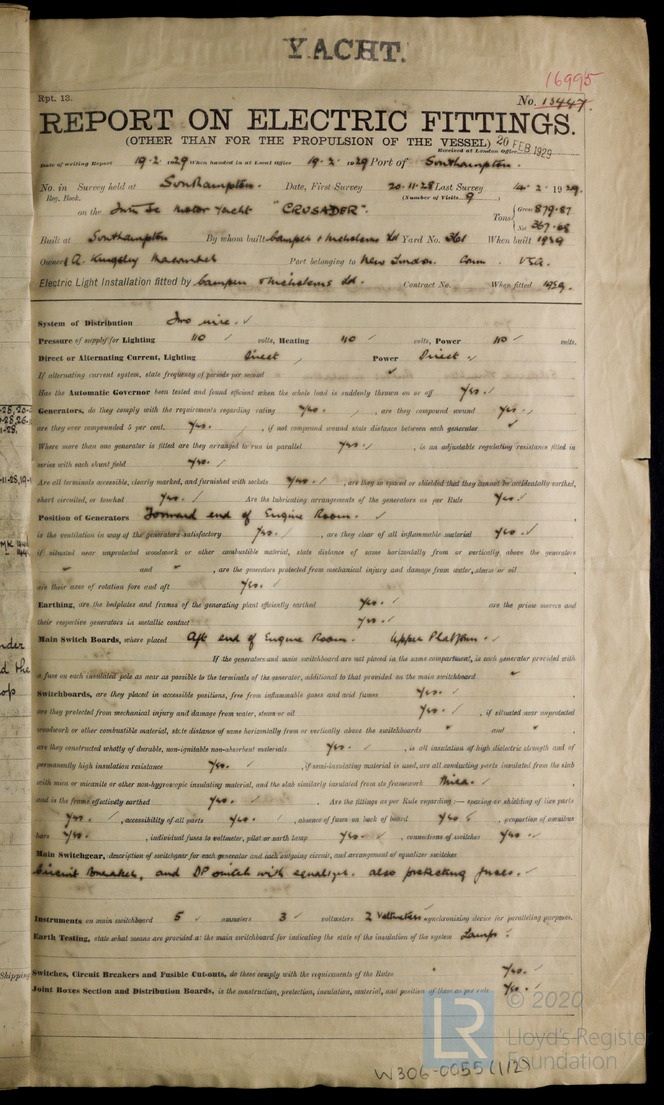 YACHT.
16995
Rpt. 13.
No. 13447.
REPORT ON ELECTRIC FITTINGS.
(OTHER THAN FOR THE PROPULSION OF THE VESSEL)
20 FEB 1929
Received at London Office
Date of writing Report 19.2.1929 When handed in at Local Office 19.2.1929 Port of Southampton.
No. in Survey held at Southampton. Date, First Survey 20.11.28 Last Survey 14.2.1929.
Reg. Book. (Number of Visits 9)
on the Twin Sc Motor Yacht "CRUSADER". Tons { Gross 879.87
Net 367.
Built at Southampton By whom built Camper & Nicholsons Ld Yard No. 361 When built 1929
Owners A. Kingsley Macomber Port belonging to New London. Conn. USA.
Electric Light Installation fitted by Camper & Nicholsons Ld. Contract No. When fitted 1929.
System of Distribution Two wire. ✓
Pressure of supply for Lighting 110 ✓ volts, Heating 110 ✓ volts, Power 110 ✓ volts.
Direct or Alternating Current, Lighting Direct Power Direct ✓
If alternating current system, state frequency of periods per second ✓
Has the Automatic Governor been tested and found efficient when the whole load is suddenly thrown on or off Yes. ✓
Generators, do they comply with the requirements regarding rating Yes. ✓, are they compound wound Yes. ✓,
are they over compounded 5 per cent. Yes. ✓, if not compound wound state distance between each generator ✓
Where more than one generator is fitted are they arranged to run in parallel Yes. ✓, is an adjustable regulating resistance fitted in
series with each shunt field Yes. ✓
Are all terminals accessible, clearly marked, and furnished with sockets Yes. ✓, are they so spaced or shielded that they cannot be accidentally earthed,
short circuited, or touched Yes. ✓ Are the lubricating arrangements of the generators as per Rule Yes. ✓
Position of Generators Forward end of Engine Room. ✓
is the ventilation in way of the generators satisfactory Yes. ✓, are they clear of all inflammable material Yes. ✓
if situated near unprotected woodwork or other combustible material, state distance of same horizontally from or vertically above the generators
✓ and ✓, are the generators protected from mechanical injury and damage from water, steam or oil
are their axes of rotation fore and aft Yes. ✓
Earthing, are the bedplates and frames of the generating plant efficiently earthed Yes. ✓ are the prime movers and
their respective generators in metallic contact Yes. ✓
Main Switch Boards, where placed Aft end of Engine Room. Upper Platform. ✓
If the generators and main switchboard are not placed in the same compartment, is each generator provided with
a fuse on each insulated pole as near as possible to the terminals of the generator, additional to that provided on the main switchboard ✓
Switchboards, are they placed in accessible positions, free from inflammable gases and acid fumes Yes. ✓,
are they protected from mechanical injury and damage from water, steam or oil Yes. ✓, if situated near unprotected
woodwork or other combustible material, state distance of same horizontally from or vertically above the switchboards ✓ and ✓,
are they constructed wholly of durable, non-ignitable non-absorbent materials Yes. ✓, is all insulation of high dielectric strength and of
permanently high insulation resistance Yes. ✓, if semi-insulating material is used, are all conducting parts insulated from the slab
with mica or micanite or other non-hygroscopic insulating material, and the slab similarly insulated from its framework Mica. ✓
and is the frame effectively earthed Yes. ✓. Are the fittings as per Rule regarding:— spacing or shielding of live parts
Yes. ✓, accessibility of all parts Yes. ✓, absence of fuses on back of board Yes ✓, proportion of omnibus
bars Yes. ✓, individual fuses to voltmeter, pilot or earth lamp Yes. ✓, connections of switches Yes. ✓
Main Switchgear, description of switchgear for each generator and each outgoing circuit, and arrangement of equalizer switches
Circuit Breaker, and DP switch with equaliser. also protecting fuses. ✓
Instruments on main switchboard 5 ✓ ammeters 3 ✓ voltmeters 2 Voltmeters synchronising device for paralleling purposes.
Earth Testing, state what means are provided at the main switchboard for indicating the state of the insulation of the system Lamps ✓
Switches, Circuit Breakers and Fusible Cut-outs, do these comply with the requirements of the Rules Yes. ✓
Joint Boxes Section and Distribution Boards, is the construction, protection, insulation, material, and position of them as per rule Yes. ✓
© 2020
LR
Lloyd's Register
Foundation
W306-0055 (1/2)